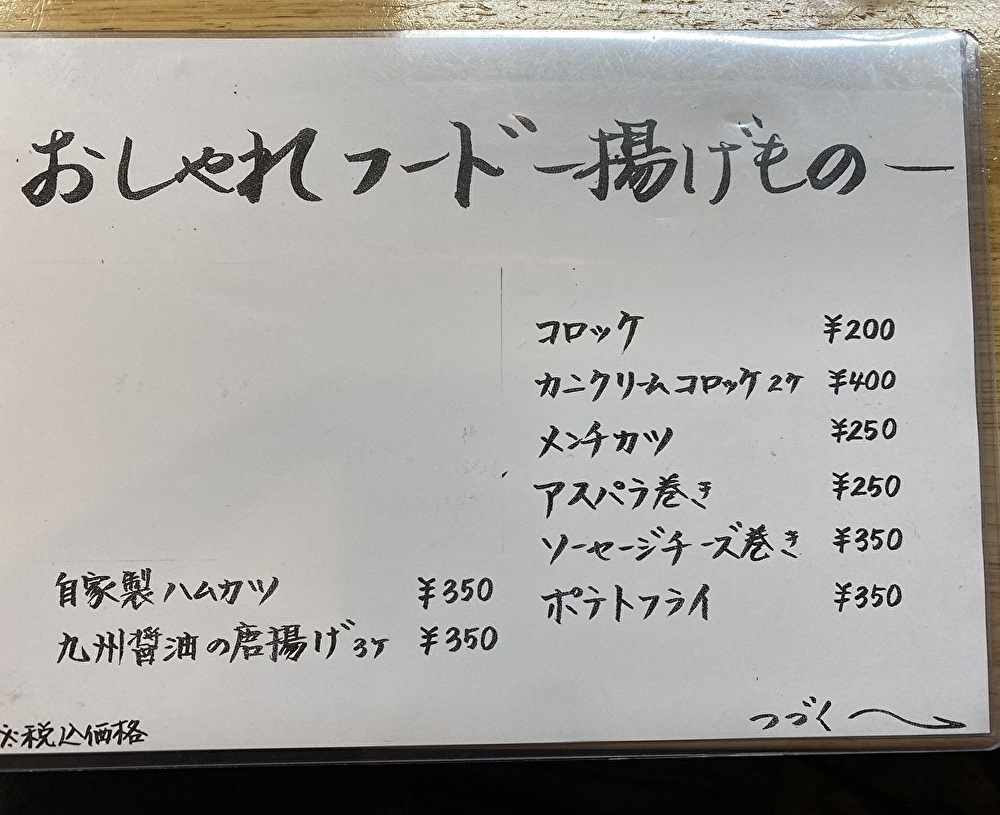 おしゃれフード ー揚げものー
自家製ハムカツ ¥350
九州醤油の唐揚げ3ヶ ¥350
コロッケ ¥200
カニクリームコロッケ2ケ ¥400
メンチカツ ¥250
アスパラ巻き ¥250
ソーセージチーズ巻き ¥350
ポテトフライ ¥350
※税込価格
つづく